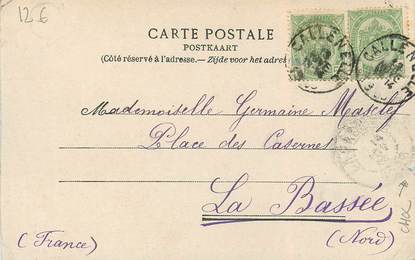 12 €
CARTE POSTALE
POSTKAART
(Côté réservé à l'adresse. — Zijde voor het adres
CALLENELLE
CALLENELLE
Mademoiselle Germaine Masclef
Place des Casernes
La Bassée
(France) (Nord)